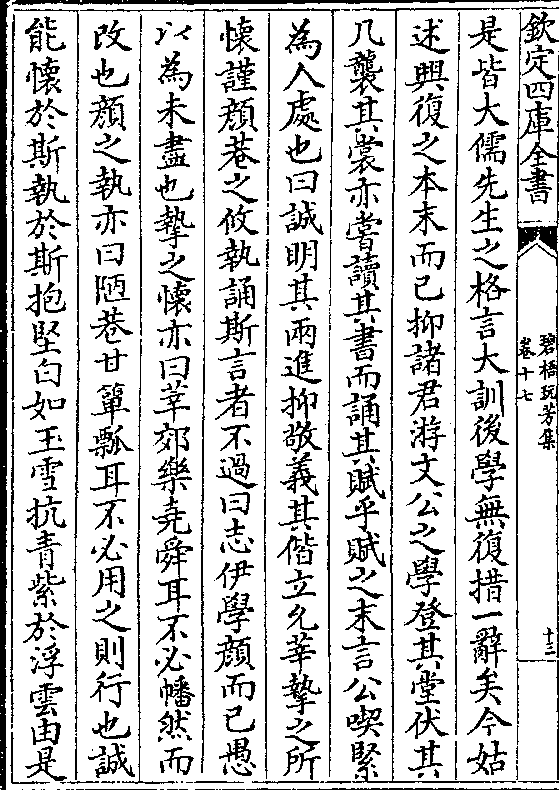 欽定四庫全書
碧梧玩芳集
卷十七
十三
是皆大儒先生之格言大訓後學無復措一辭矣今姑
述興復之本末而已抑諸君游文公之學登其堂伏其
几襲其裳亦嘗讀其書而誦其賦乎賦之末言公喫緊
為人處也曰誠明其兩進抑敬義其偕立允莘摯之所
懷謹顔巷之攸執誦斯言者不過曰志伊學顔而已愚
以為未盡也摯之懷亦曰莘郊樂堯舜耳不必幡然而
改也顔之執亦曰陋巷甘簞瓢耳不必用之則行也誠
能懷於斯執於斯抱堅白如玉雪抗青紫於浮雲由是